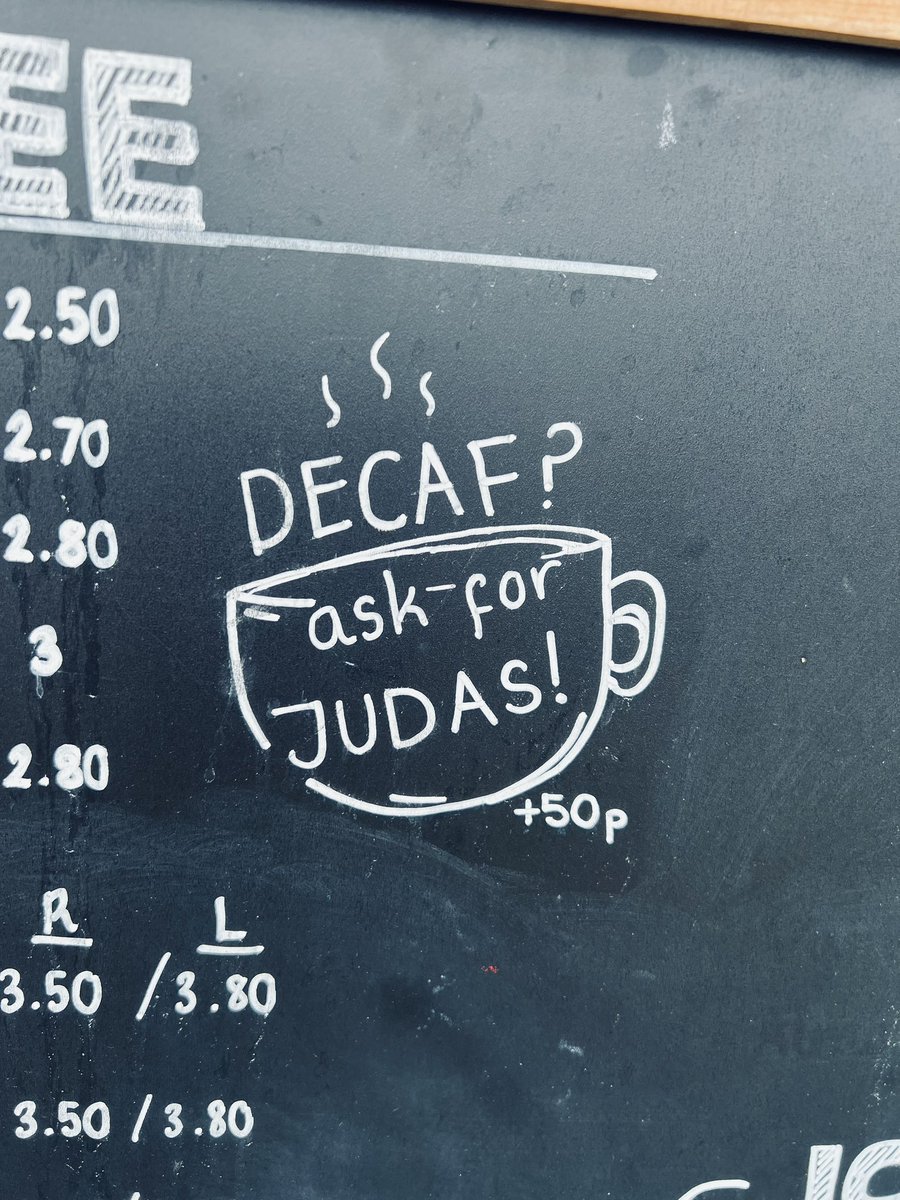 EE
2.50
2.70
2.80
3
2.80
DECAF?
ask-for
JUDAS!
+50p
R L
3.50 / 3.80
3.50 / 3.80